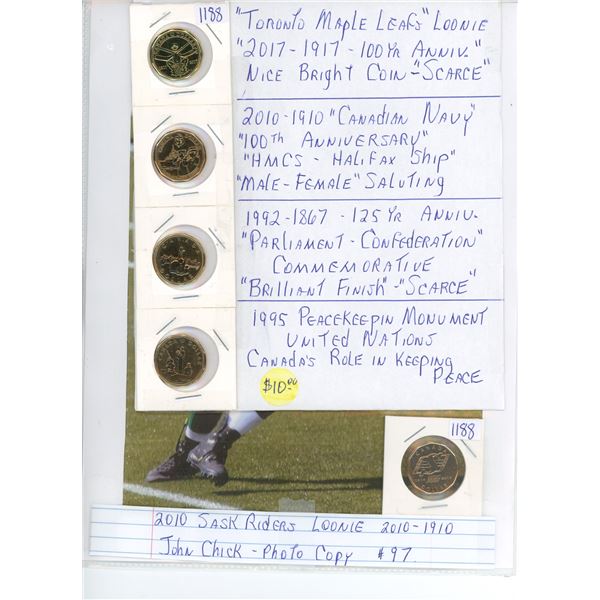 1188
"Toronto Maple Leafs" Loonie
"2017-1917-100Yr Anniv."
Nice Bright Coin-"Scarce"
2010-1910 "Canadian Navy"
"100th Anniversary"
"HMCS-Halifax Ship"
"Male-Female" Saluting
1992-1867-125 Yr Anniv-
"Parliament-Confederation"
Commemorative
"Brilliant Finish"-"Scarce"
1995 Peacekeepin Monument
United Nations
Canada's Role in Keeping
Peace
$10.00
1188
2010 Sask Riders Loonie 2010-1910
John Chick-Photo Copy #97.